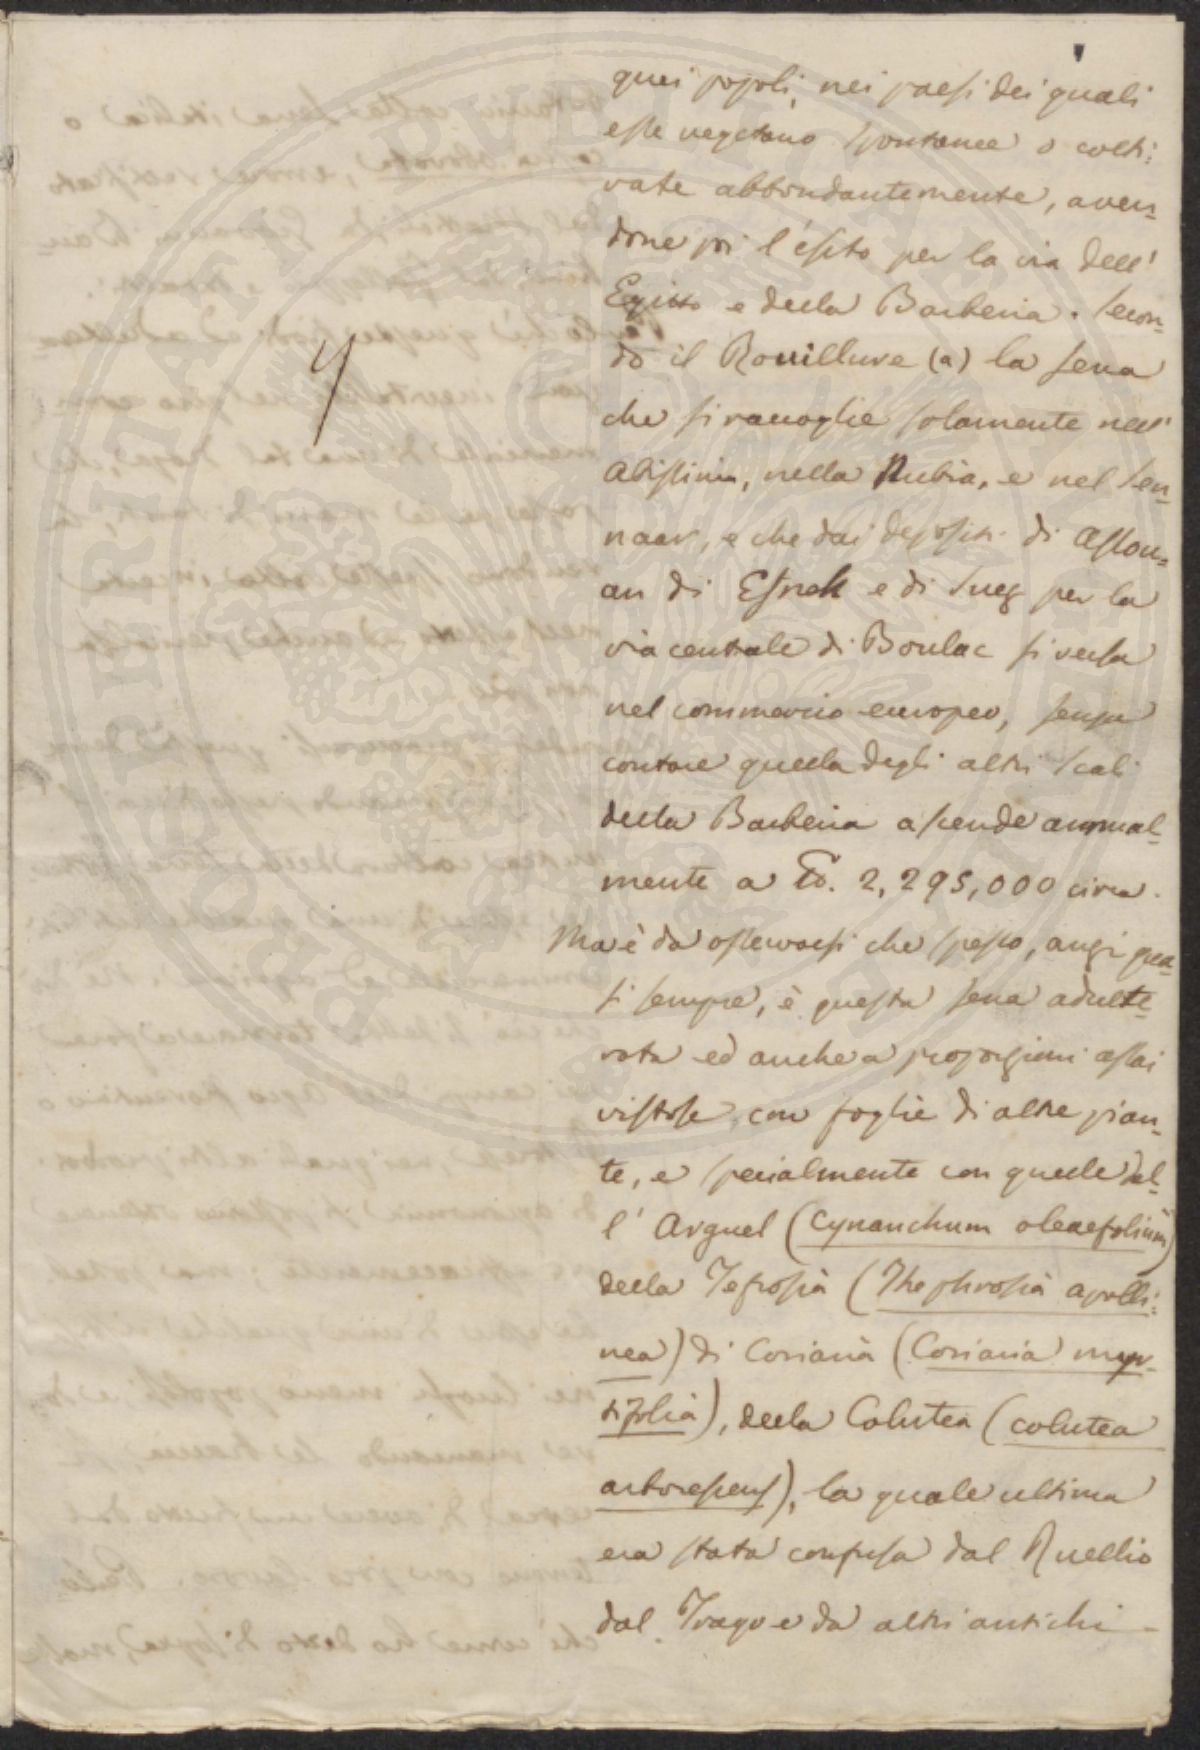 quei popoli, nei paesi dei quali
esse vegetano spontanee o colti:
vate abbondantemente, aven-
done poi l'esito per la via dell'
Egitto e della Barberia. Secon-
do il Rouillure (a) la sena
che si raccoglie solamente nell'
Abissinia, nella Nubia, e nel Sen-
naar, e che dai depositi di Assou-
an di Esneh e di Sueg per la
via centrale di Boulac si versa
nel commercio europeo, senza
contare quella degli altri scali
della Barberia ascende annual-
mente a ℔. 2,295,000 circa.
Ma è da osservarsi che spesso, anzi qua-
si sempre, è questa sena adulte-
rata ed anche a proporzioni assai
vistose, con foglie di altre pian-
te, e specialmente con quelle del-
l'Arguel (Cynanchum oleaefolium)
della Tefrosia (Thephrosia apolli:
nea) di Coriaria (Coriaria myr-
tifolia), della Colutea (colutea
arborescens), la quale ultima
era stata confusa dal Ruellio
dal Trago e da altri antichi
4
PROPRIETÀ PUBBLICA